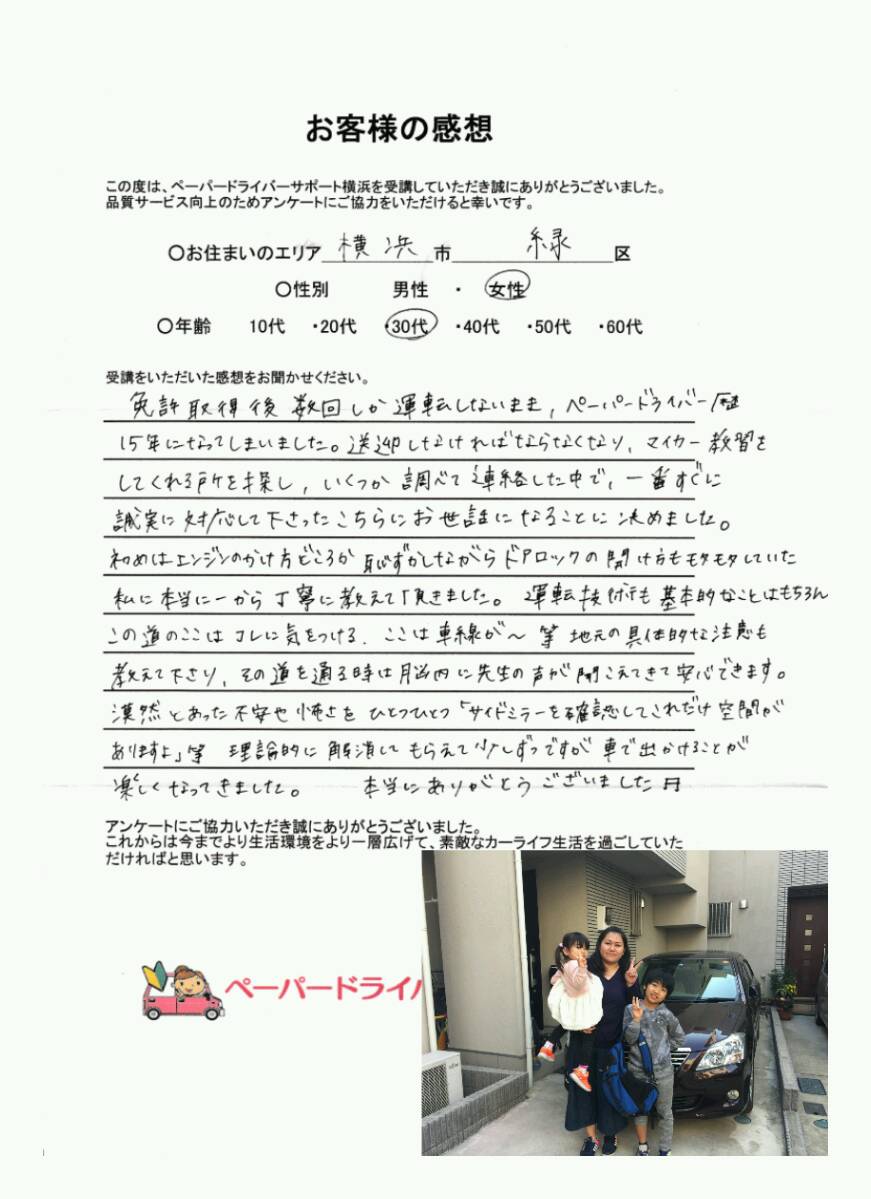 お客様の感想
この度は、ペーパードライバーサポート横浜を受講していただき誠にありがとうございました。
品質サービス向上のためアンケートにご協力をいただけると幸いです。
〇お住まいのエリア 横浜 市 緑 区
〇性別 男性 ・ 女性
〇年齢 10代 ・20代 ・30代 ・40代 ・50代 ・60代
受講をいただいた感想をお聞かせください。
免許取得後数回しか運転しないまま、ペーパードライバー歴
15年になってしまいました。送迎しなければならなくなり、マイカー教習を
してくれる所を探し、いくつか調べて連絡した中で、一番すぐに
誠実に対応して下さったこちらにお世話になることに決めました。
初めはエンジンのかけ方どころか恥ずかしながらドアロックの開け方もモタモタしていた
私に本当に一から丁寧に教えて頂きました。運転技術も基本的なことはもちろん
この道のここはコレに気をつける、ここは車線が〜等地元の具体的な注意も
教えて下さり、その道を通る時は脳内に先生の声が聞こえてきて安心できます。
漠然とあった不安や怖さをひとつひとつ「サイドミラーを確認してこれだけ空間が
ありますよ」等 理論的に解消してもらえて少しずつですが車で出かけることが
楽しくなってきました。 本当にありがとうございました
アンケートにご協力いただき誠にありがとうございました。
これからは今までより生活環境をより一層広げて、素敵なカーライフ生活を過ごしていた
だければと思います。
ペーパードライ